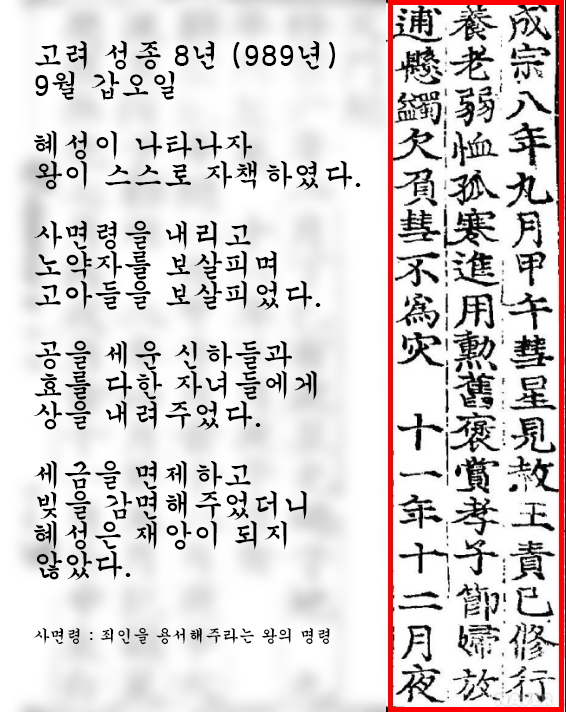 고려 성종 8년 (989년)
9월 갑오일
혜성이 나타나자
왕이 스스로 자책하였다.
사면령을 내리고
노약자를 보살피며
고아들을 보살피었다.
공을 세운 신하들과
효를 다한 자녀들에게
상을 내려주었다.
세금을 면제하고
빚을 감면해주었더니
혜성은 재앙이 되지
않았다.
사면령 : 죄인을 용서해주라는 왕의 명령
成宗八年九月甲午彗星見赦王責己修行
養老弱恤孤寒進用勲舊褒賞孝子節婦放
逋懸蠲欠負彗不爲灾 十一年十二月夜